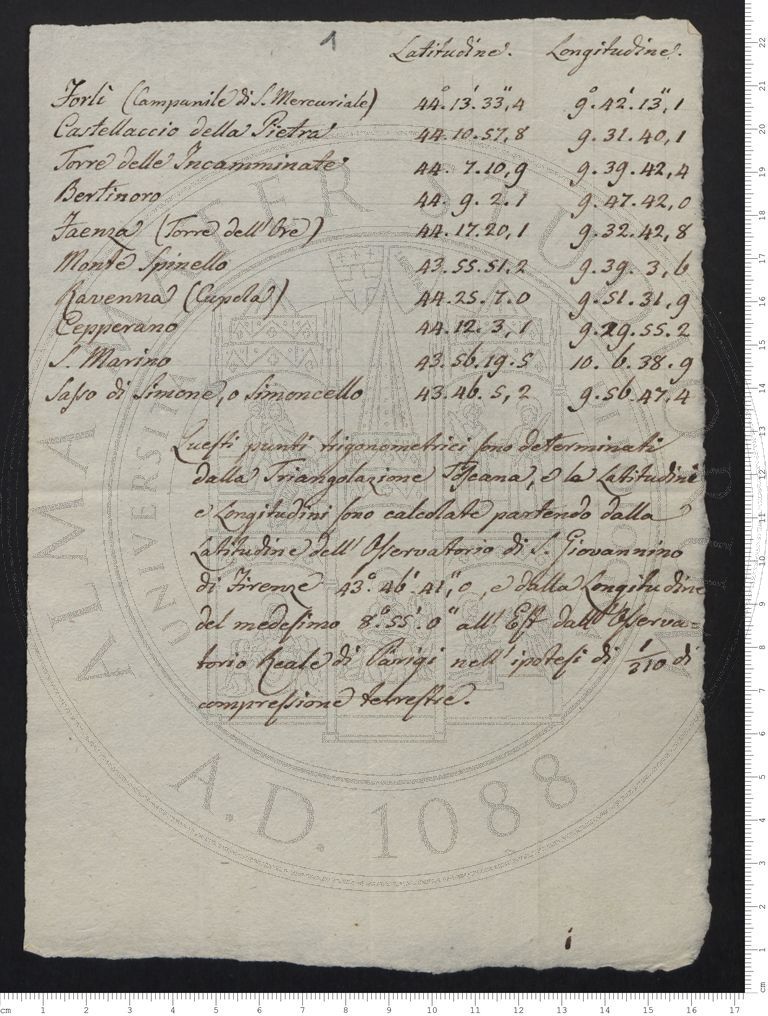 1
Latitudine. Longitudine.
Forlì (Campanile di S. Mercuriale) 44°.13'.33",4 9°.42'.13",1
Castellaccio della Pietra 44.10.57,8 9.31.40,1
Torre delle Incamminate 44. 7.10,9 9.39.42,4
Bertinoro 44. 9. 2.1 9.47.42,0
Faenza (Torre dell'Ore) 44.17.20,1 9.32.42,8
Monte Spinello 43.55.51.2 9.39. 3,6
Ravenna (Cupola) 44.25.7.0 9.51.31,9
Cepperano 44.12. 3,1 9.29.55.2
S. Marino 43.56.19.5 10. 6.38.9
Sasso di Simone, o Simoncello 43.46. 5,2 9.56.47.4
Questi punti trigonometrici sono determinati
dalla Triangolazione Toscana, e la Latitudini
e Longitudini sono calcolate partendo dalla
Latitudine dell'Osservatorio di S. Giovannino
di Firenze 43°.46'.41",0, e dalla Longitudine
del medesimo 8°.55'.0" all'Est dall'Osserva=
torio Reale di Parigi nell'ipotesi di 1/310 di
compressione terrestre.
ALMA MATER STUDIORUM
UNIVERSITÀ DI BOLOGNA
A.D. 1088